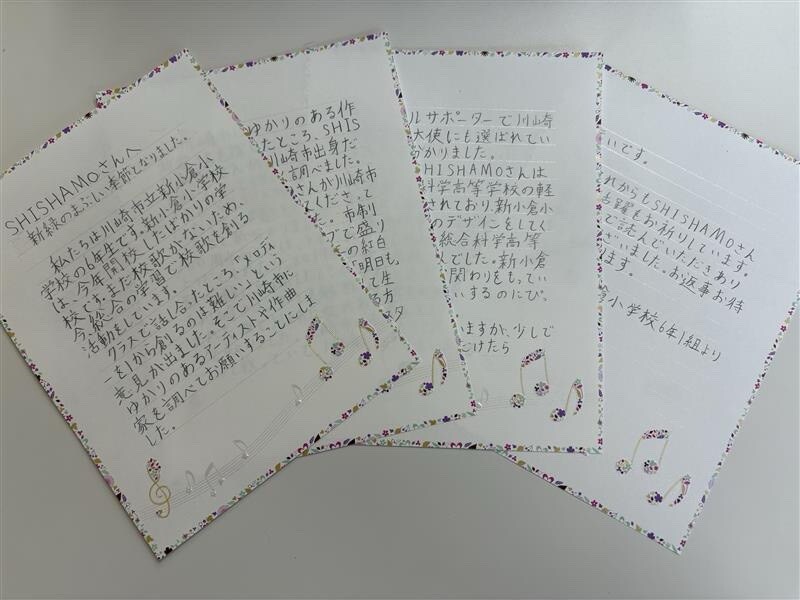 SHISHAMOさんへ
新緑のまぶしい季節となりました。
私たちは川崎市立新小倉小
学校の6年生です。新小倉小学校
は、今年開校したばかりの学
校です。まだ校歌がないため、
今総合の学習で校歌を創る
活動をしています。
クラスで話し合ったところ、「メロディ
ーを1から創るのは難しい」という
意見が出ました。そこで川崎市に
ゆかりのあるアーティストや作曲
家を調べてお願いすることにしま
した。
ゆかりのある作
たところ、SHIS
川崎市出身だ
調べました。
さんが川崎市
てくださって
た。市制
ブで盛り
の紅白
「明日も
て生
る方
スタ
ルサポーターで川崎
大使にも選ばれてい
分かりました。
SHISHAMOさんは
科学高等学校の軽
されており、新小倉小
のデザインをしてく
総合科学高等
でした。新小倉
関わりをもってい
いするのにぴ
いますが、少しで
だけたら
いです。
れからもSHISHAMOさん
活躍をお祈りしています。
で読んでいただきあり
ざいました。お返事お待
ります。
倉小学校6年1組より